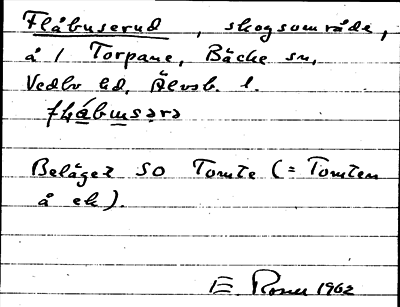 Flåbuserud, skogsområde,
å 1 Torpane, Bäcke sn,
Vedbo hd, Älvsb. l.
flǻbusərə
Beläget SO Tomte (= Tomten
å ek).
E. Rosell 1962